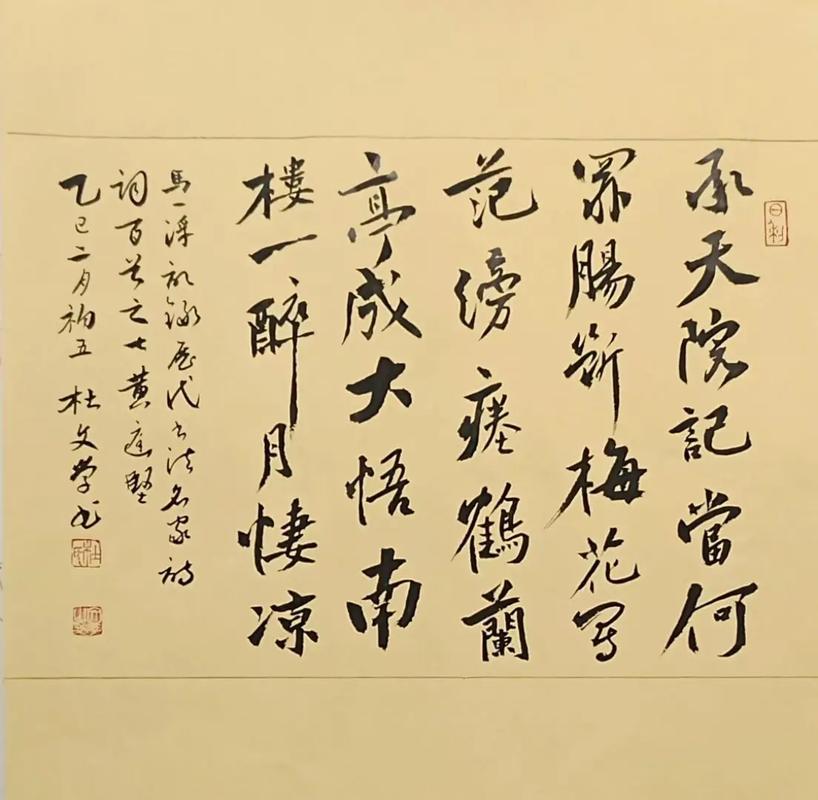 承天院記當何
罪腸斷梅花寫
范滂瘗鶴蘭
亭成大悟南
樓一醉月悽凉
馬一浮録歷代书法名家詩
詞百首之七黄庭堅
乙巳二月初五 杜文学书